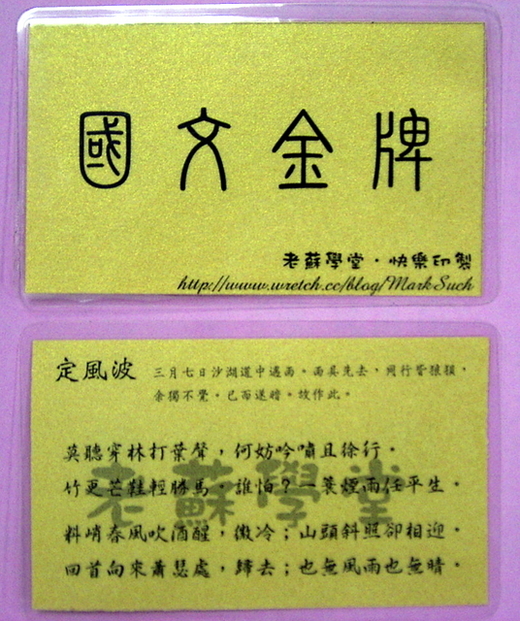 國文金牌
老蘇學堂‧快樂印製
http://www.wretch.cc/blog/MarkSuch
定風波
三月七日沙湖道中遇雨。雨具先去，同行皆狼狽，
余獨不覺。已而遂晴。故作此。
莫聽穿林打葉聲，何妨吟嘯且徐行。
竹更芒鞋輕勝馬。誰怕？一蓑煙雨任平生。
料峭春風吹酒醒，微冷；山頭斜照卻相迎。
回首向來蕭瑟處，歸去；也無風雨也無晴。
老蘇學堂